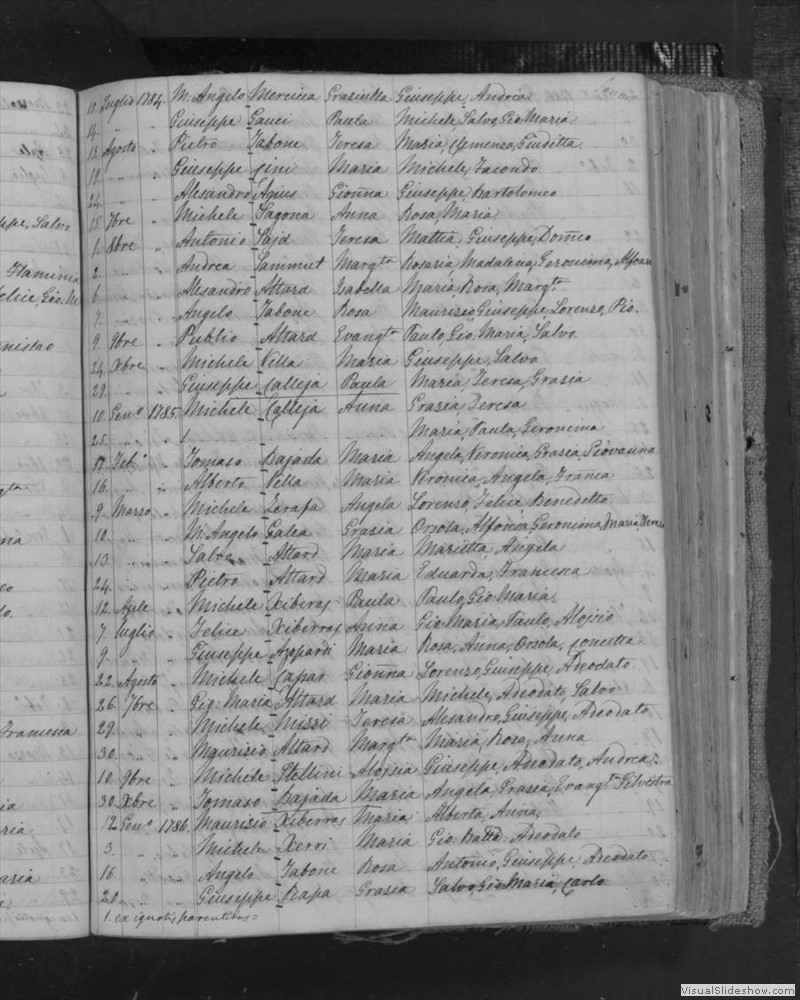 ppe, Salvo
Flaminia
elice, Gio: M
nistao
na
lo.
Francesca
ia
aria
aria
10. Luglio 1784. M: Angelo Mercieca Grasiulla Giuseppe, Andrea
14. „ „ Giuseppe Gauci Paula Michele, Salvo, Gio Maria
13. Agosto „ Pietro Tabone Teresa Maria, Clemenza, Giuditta
19. „ „ Giuseppe Cini Maria Michele, Facondo
24. „ „ Alesandro Agius Gionna Giuseppe, Bartolomeo
15. 7bre „ Michele Sagona Anna Rosa, Maria
1. 8bre „ Antonio Sajd Teresa Mattia, Giuseppe, Domco
2. „ „ Andrea Sammut Margta Rosaria, Madalena, Geronima,
6. „ „ Alesandro Attard Isabella Maria, Rosa, Margta
7. „ „ Angelo Tabone Rosa Maurisio, Giuseppe, Lorenzo, Pio.
9. 9bre „ Publio Attard Evangta Paulo, Gio. Maria, Salvo
24. Xbre „ Michele Villa Maria Giuseppe, Salvo
29. „ „ Giuseppe Calleja Paula Maria, Teresa, Grasia
10. Geno 1785. Michele Calleja Anna Grasia, Teresa
25. „ „ 1 Maria, Paula, Geronima
17. Febo „ Tomaso Bajada Maria Angela, Veronica, Grasia, Giovanna
16. „ „ Alberto Vella Maria Veronica, Angela,
9. Marzo „ Michele Zerafa Angela Lorenzo, Felice, Benedetto
10. „ „ M: Angelo Galea Grasia Orsola, Alfonsa, Geronima, Maria,
13. „ „ Salvo Attard Maria Marietta, Angela
24. „ „ Pietro Attard Maria Eduarda, Francesca
12. Aple „ Michele Xiberras Paula Paulo, Gio: Maria.
7. Luglio „ Felice Xiberras Anna Gio Maria, Paulo, Aloisio
9. „ „ Giuseppe Azopardi Maria Rosa, Anna, Orsola, Concetta
22. Agosto „ Michele Capar Gionna Lorenzo, Giuseppe, Adeodato
26. 7bre „ Gio: Maria Attard Maria Michele, Adeodato, Salvo
29. „ „ Michele Missi Teresa Alesandro, Giuseppe, Adeodato
30. „ „ Maurisio Attard Margta Maria, Rosa, Anna
10. 9bre „ Michele Stellini Aloisia Giuseppe, Adeodato, Andrea
30. Xbre „ Tomaso Bajada Maria Angela, Grasia, Evangta Silvestra
12. Geno 1786. Maurisio Xiberras Maria Alberta, Anna,
3. „ „ Michele Xerri Maria Gio: Batta: Adeodato
16. „ „ Angelo Tabone Rosa Antonio, Giuseppe, Adeodato
20. „ „ Giuseppe Rapa Grasia Salvo, Gio Maria, Carlo
1. ex ignotis parentibus =
VisualSlideshow.com